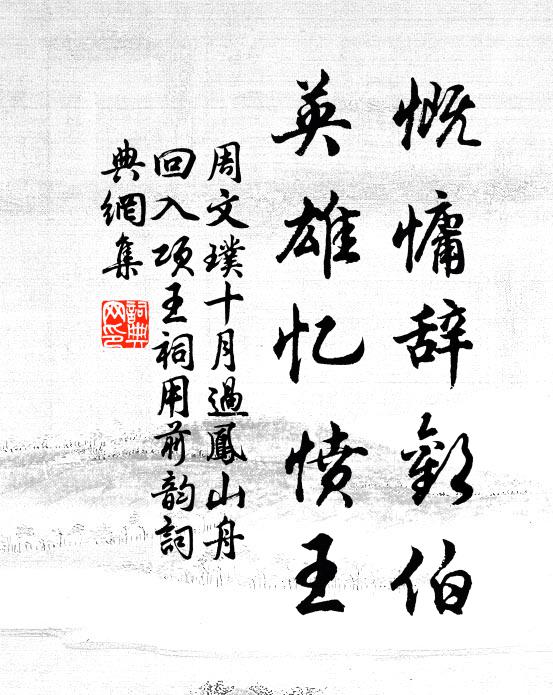 慨慵辞歡伯
英雄忆愤王
周文璞十月過鳳山舟
回入项王祠用前韵詞
典網集
詞典网印